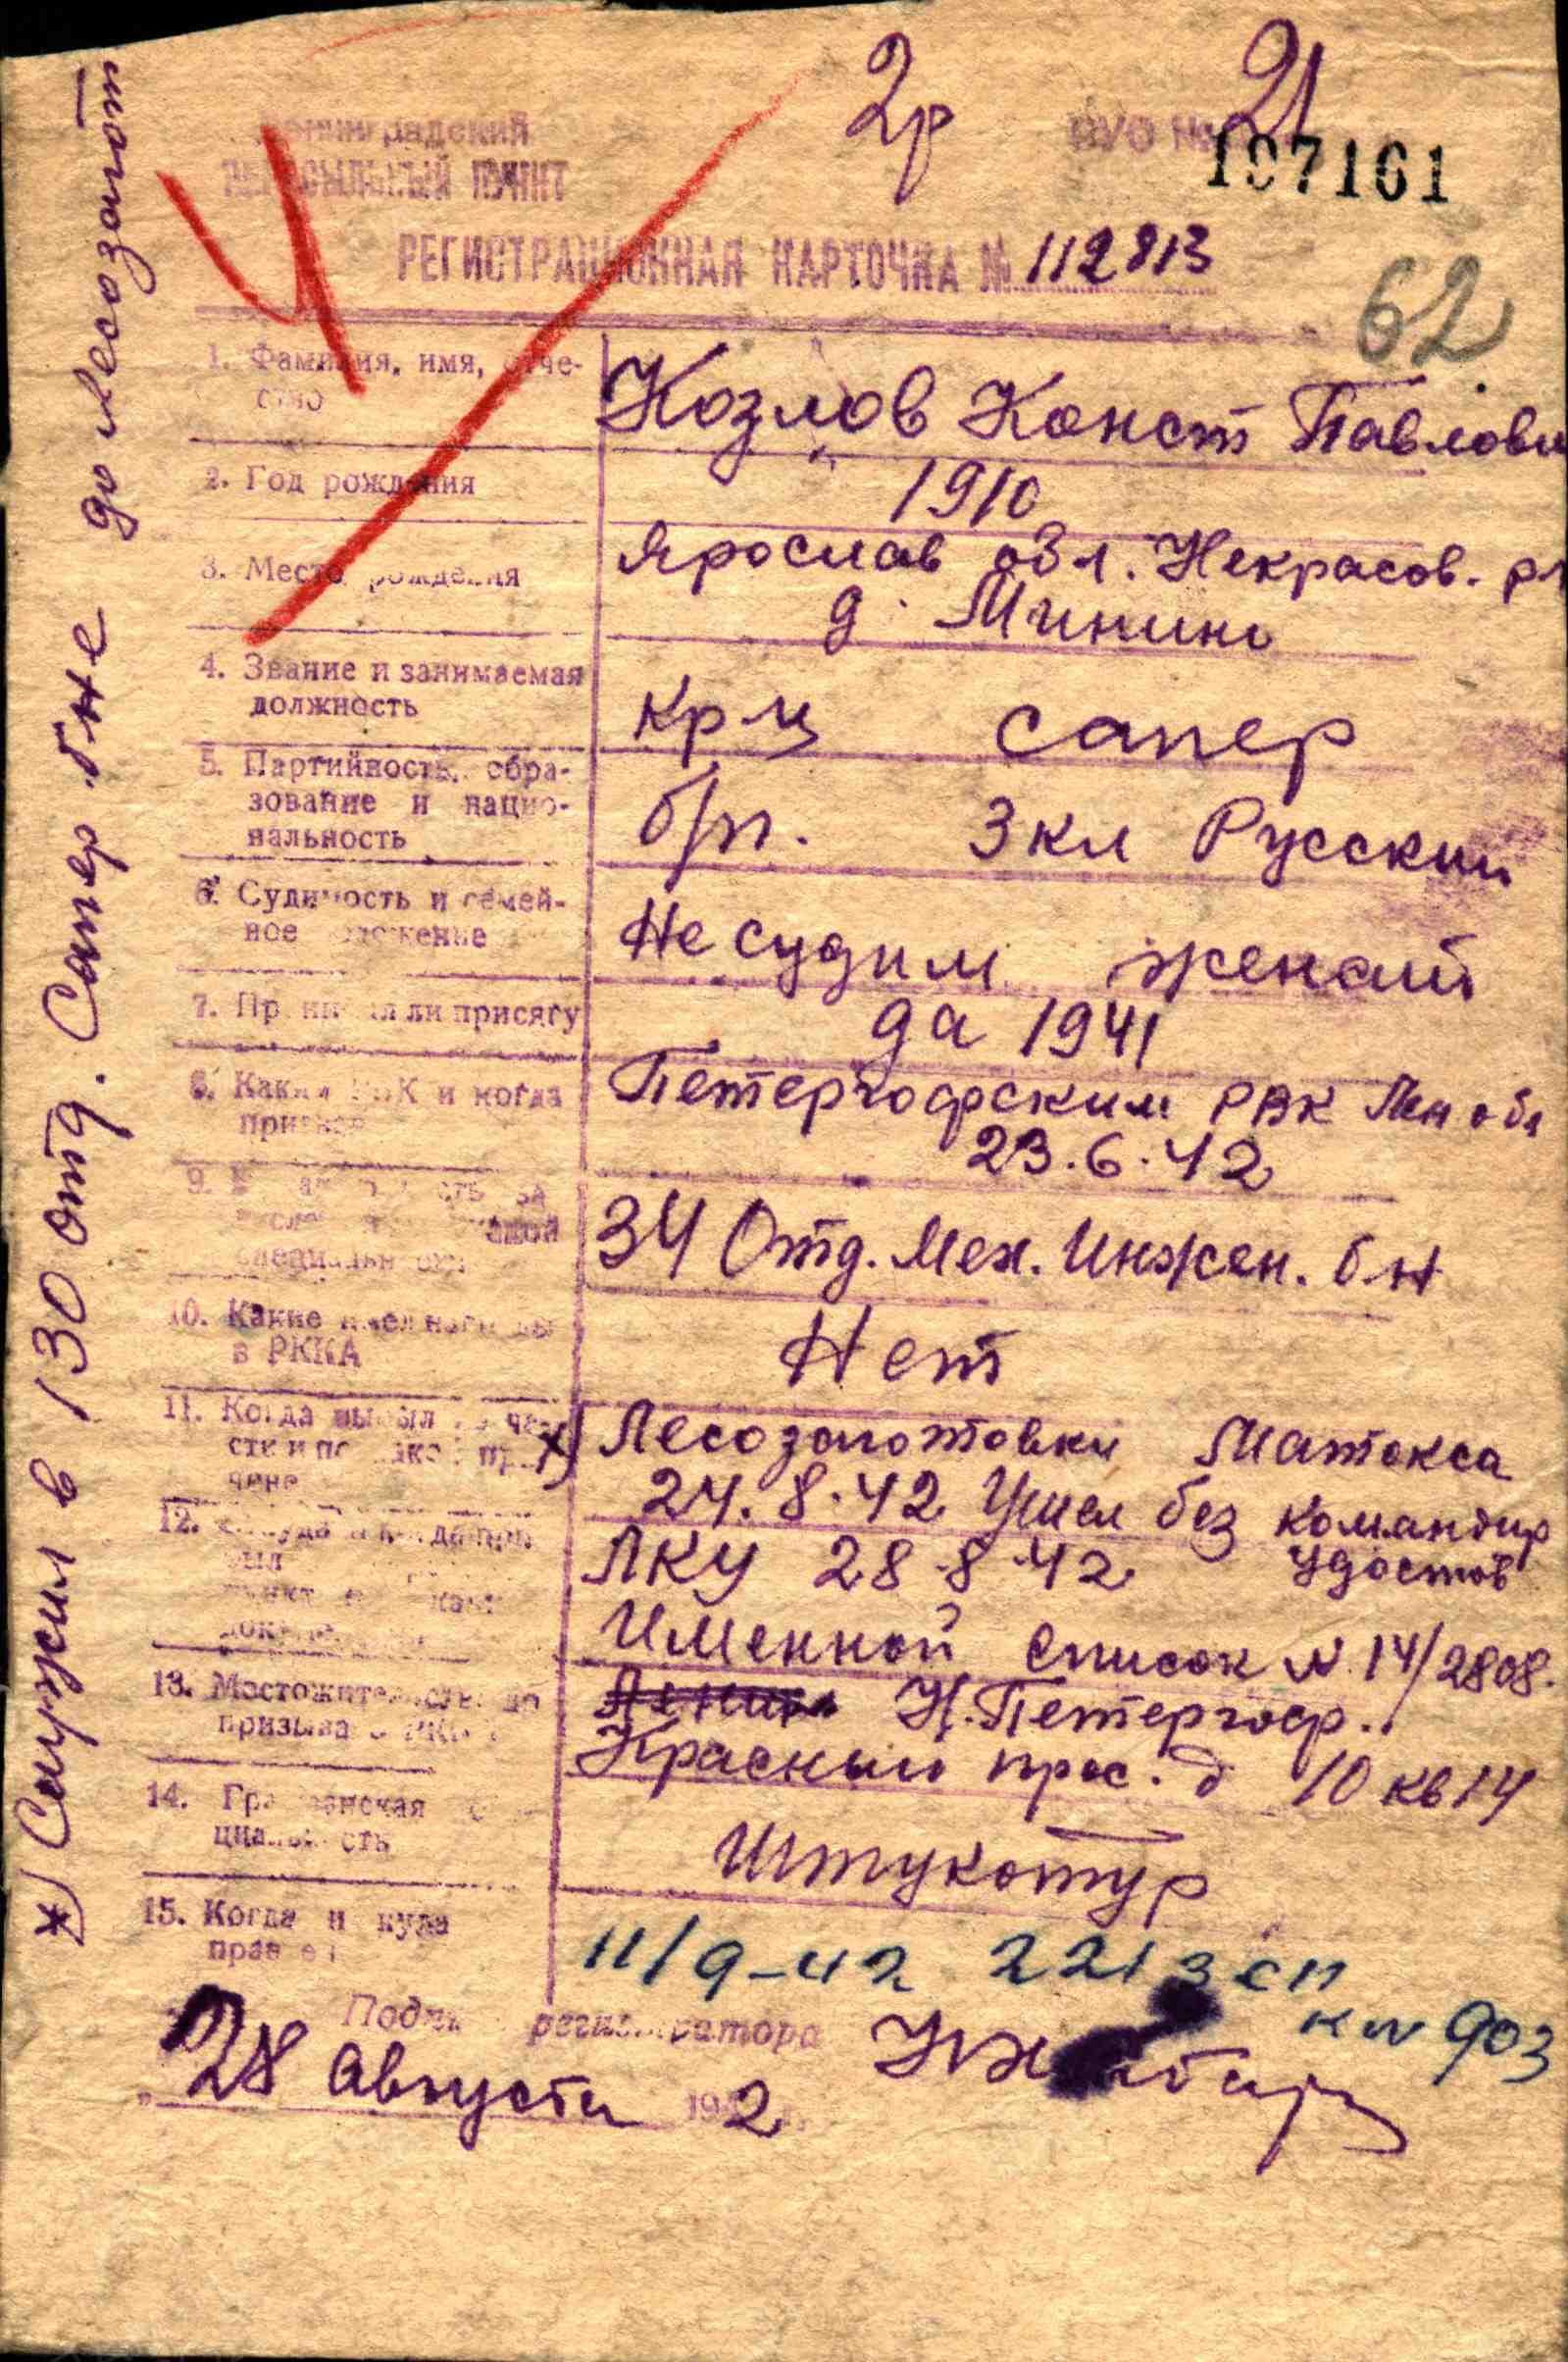 2р 21
Ленинградский ВУО №
ПЕРЕСЫЛЬНЫЙ ПУНКТ 197161
РЕГИСТРАЦИОННАЯ КАРТОЧКА № 112813
62
1. Фамилия, имя, отче-
ство
Козлов Конст Павлови
2. Год рождения
1910
3. Место рождения
Ярослав обл. Некрасов. р
д. Минино
4. Звание и занимаемая
должность
кр-ц сапер
5. Партийность, обра-
зование и нацио-
нальность
б/п. 3 кл Русский
6. Судимость и семей-
ное положение
Не судим женат
7. Принимал ли присягу
да 1941
8. Каким РВК и когда
призван
Петергофским РВК Лен обл
23.6.42
9.
34 Отд. Мех. Инжен. б-н
10. Какие имел награды
в РККА
Нет
11. Когда выбыл
*) Лесозаготовки Матокса
24.8.42 Ушел без командир
удостов
12.
ЛКУ 28.8.42
Именной список N 14/2808.
13. Местожительство до
призыва в РККА
Н. Петергоф.
Красный прос. д 10 кв 14
14. Гражданская
циальность
Штукотур
15. Когда и куда
11/9-42 22 / зсп
к N 903
Подпись регистратора
28 августа 1942
*) Служил в 130 отд. Сапер б-не до лесозагот